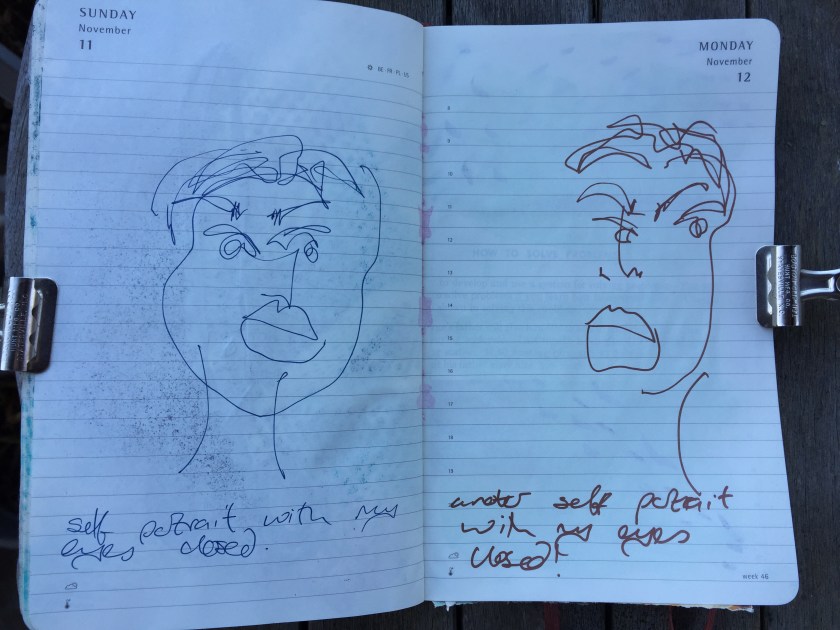 SUNDAY
November
11
self portrait with my
eyes closed.
MONDAY
November
12
8
9
10
11
12
13
14
15
16
17
18
19
another self portrait
with my eyes
closed!
week 46